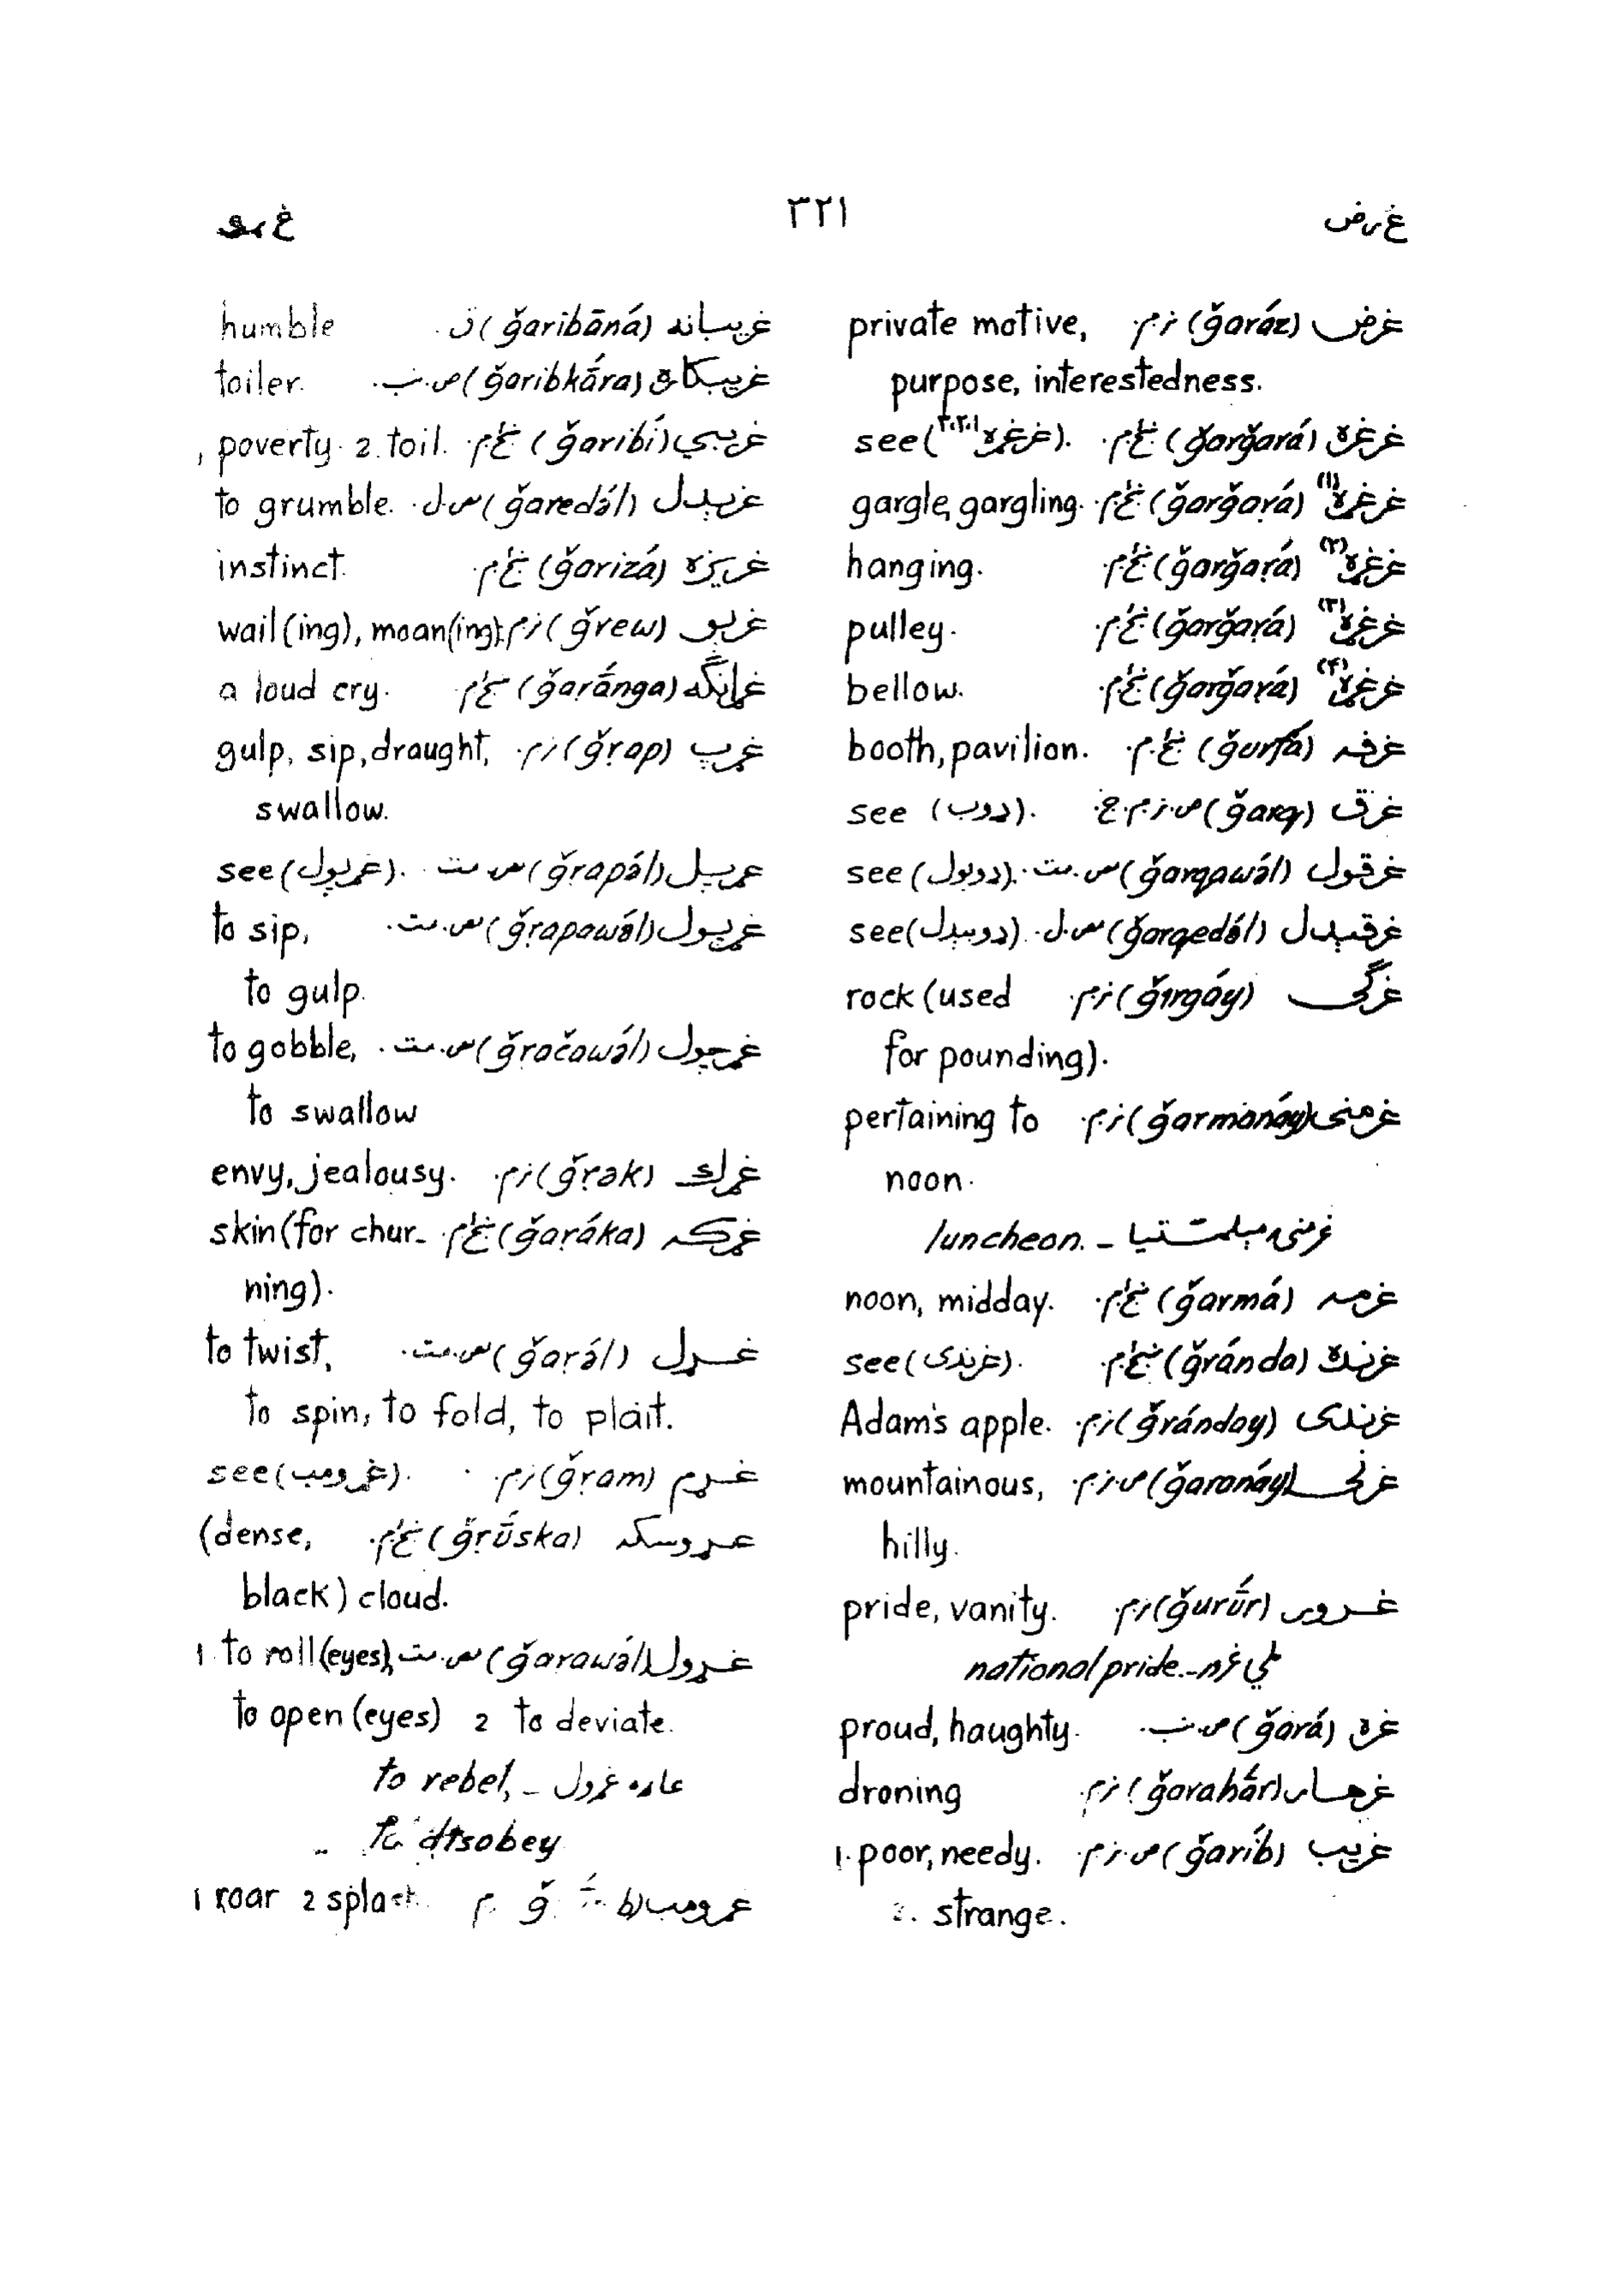 غ رض
۳۲۱
غ رو
غرض (ğaráz) ن.م. private motive,
purpose, interestedness.
غرغره (ğarğará) ښځ.م. see (غړغړه ۱،۲،۳).
غړغړه (۱) (ğaṛğaṛá) ښځ.م. gargle, gargling.
غړغړه (۲) (ğaṛğaṛá) ښځ.م. hanging.
غړغړه (۳) (ğaṛğaṛá) ښځ.م. pulley.
غړغړه (۴) (ğaṛğaṛá) ښځ.م. bellow.
غرفه (ğurfá) ښځ.م. booth, pavilion.
غرق (ğarq) see (ډوب).
غرقول (ğarqawə́l) ص.مت. see (ډوبول).
غرقېدل (ğarqedə́l) ص.ل. see (ډوبېدل).
غرګی (ğırgáy) ن.م. rock (used
for pounding).
غرمنی (ğarmanáy) ن.م. pertaining to
noon.
غرمنۍ مېلمستيا – luncheon.
غرمه (ğarmá) ښځ.م. noon, midday.
غرنده (ğránda) ښځ.م. see (غرندی).
غرندی (ğránday) ن.م. Adam's apple.
غرنی (ğaranáy) ص.ن.م. mountainous,
hilly.
غرور (ğurū́r) ن.م. pride, vanity.
ملي غ – national pride.
غره (ğará) ص.ب. proud, haughty.
غرهار (ğarahā́r) ن.م. droning
غريب (ğaríb) ص.ن.م. 1. poor, needy.
2. strange.
غريبانه (ğaribāná) ق. humble
غريبکاره (ğaribkā́ra) ص.ب. toiler.
غريبي (ğaribí) ښځ.م. poverty. 2. toil.
غرېدل (ğaredə́l) ص.ل. to grumble.
غريزه (ğarizá) ښځ.م. instinct.
غرېو (ğrew) ن.م. wail(ing), moan(ing).
غړانګه (ğaṛā́nga) ښځ.م. a loud cry.
غړپ (ğṛap) ن.م. gulp, sip, draught,
swallow.
غړپل (ğṛapə́l) ص.مت. see (غړپول).
غړپول (ğṛapawə́l) ص.مت. to sip,
to gulp.
غړچول (ğṛačawə́l) ص.مت. to gobble,
to swallow
غړك (ğṛək) ن.م. envy, jealousy.
غړکه (ğaṛáka) ښځ.م. skin (for chur-
ning).
غړل (ğaṛə́l) ص.مت. to twist,
to spin, to fold, to plait.
غړم (ğṛam) ن.م. see (غړومب).
غړوسکه (ğṛū́ska) ښځ.م. (dense,
black) cloud.
غړول (ğaṛawə́l) ص.مت. 1 to roll (eyes),
to open (eyes) 2 to deviate.
غاړه غړول – to rebel,
to disobey
غړومب 1 roar 2